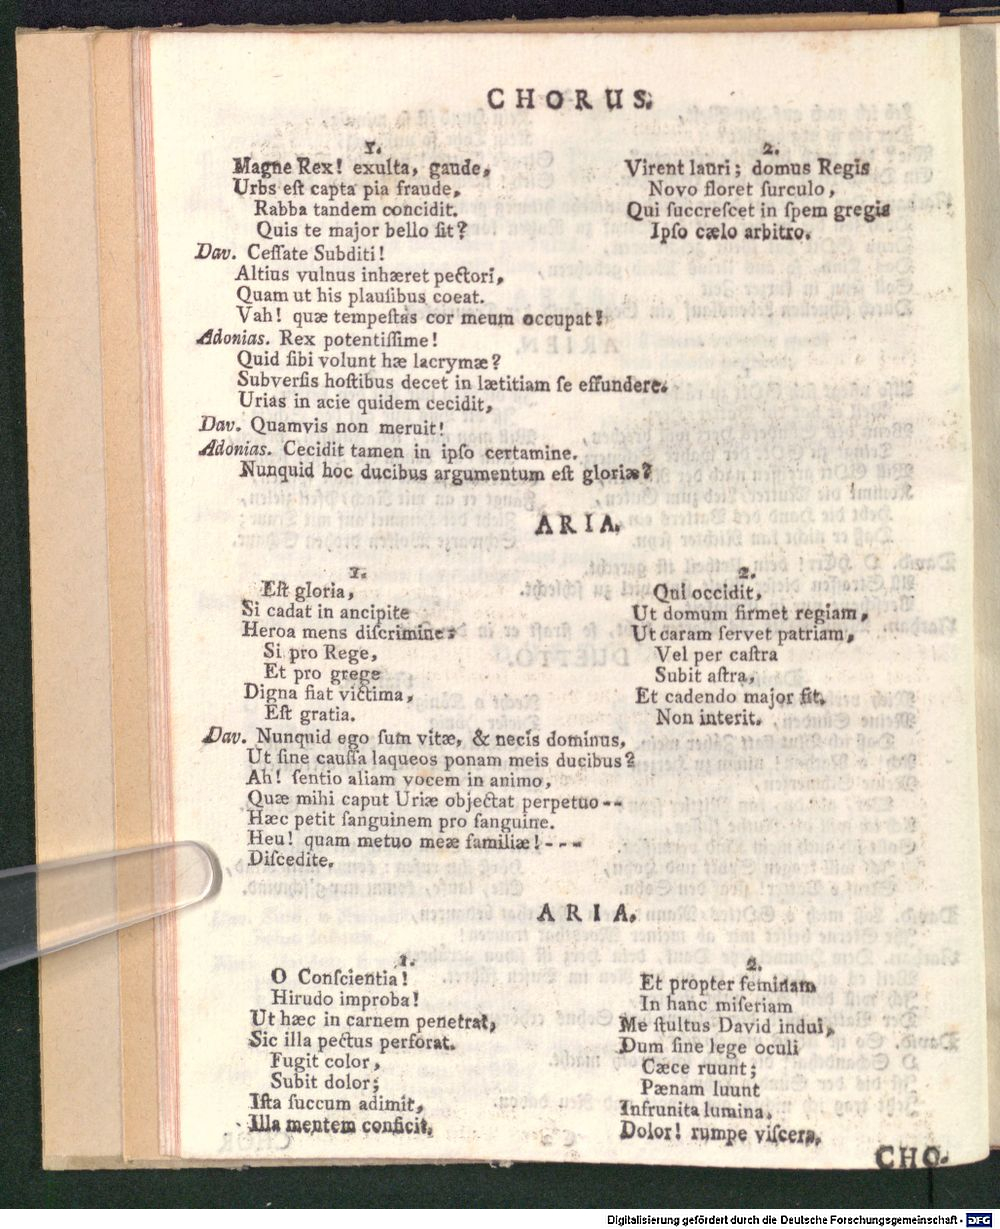 CHORUS.
1.
Magne Rex! exulta, gaude,
Urbs eſt capta pia fraude,
Rabba tandem concidit.
Quis te major bello ſit?
2.
Virent lauri; domus Regis
Novo floret ſurculo,
Qui ſuccreſcet in ſpem gregis
Ipſo cælo arbitro.
Dav. Ceſſate Subditi!
Altius vulnus inhæret pectori,
Quam ut his plauſibus coeat.
Vah! quæ tempeſtas cor meum occupat!
Adonias. Rex potentiſſime!
Quid ſibi volunt hæ lacrymæ?
Subverſis hoſtibus decet in lætitiam ſe effundere.
Urias in acie quidem cecidit,
Dav. Quamvis non meruit!
Adonias. Cecidit tamen in ipſo certamine.
Nunquid hoc ducibus argumentum eſt gloriæ?
ARIA.
1.
Eſt gloria,
Si cadat in ancipite
Heroa mens diſcrimine:
Si pro Rege,
Et pro grege
Digna fiat victima,
Eſt gratia.
2.
Qui occidit,
Ut domum firmet regiam,
Ut caram ſervet patriam,
Vel per caſtra
Subit aſtra,
Et cadendo major fit,
Non interit.
Dav. Nunquid ego ſum vitæ, & necis dominus,
Ut ſine cauſſa laqueos ponam meis ducibus?
Ah! ſentio aliam vocem in animo,
Quæ mihi caput Uriæ objectat perpetuo--
Hæc petit ſanguinem pro ſanguine.
Heu! quam metuo meæ familiæ!---
Diſcedite.
ARIA.
1.
O Conſcientia!
Hirudo improba!
Ut hæc in carnem penetrat,
Sic illa pectus perforat.
Fugit color,
Subit dolor;
Iſta ſuccum adimit,
Illa mentem conficit.
2.
Et propter feminam
In hanc miſeriam
Me ſtultus David indui,
Dum ſine lege oculi
Cæce ruunt;
Pænam luunt
Infrunita lumina.
Dolor! rumpe viſcera.
CHO-
Digitalisierung gefördert durch die Deutsche Forschungsgemeinschaft - DFG